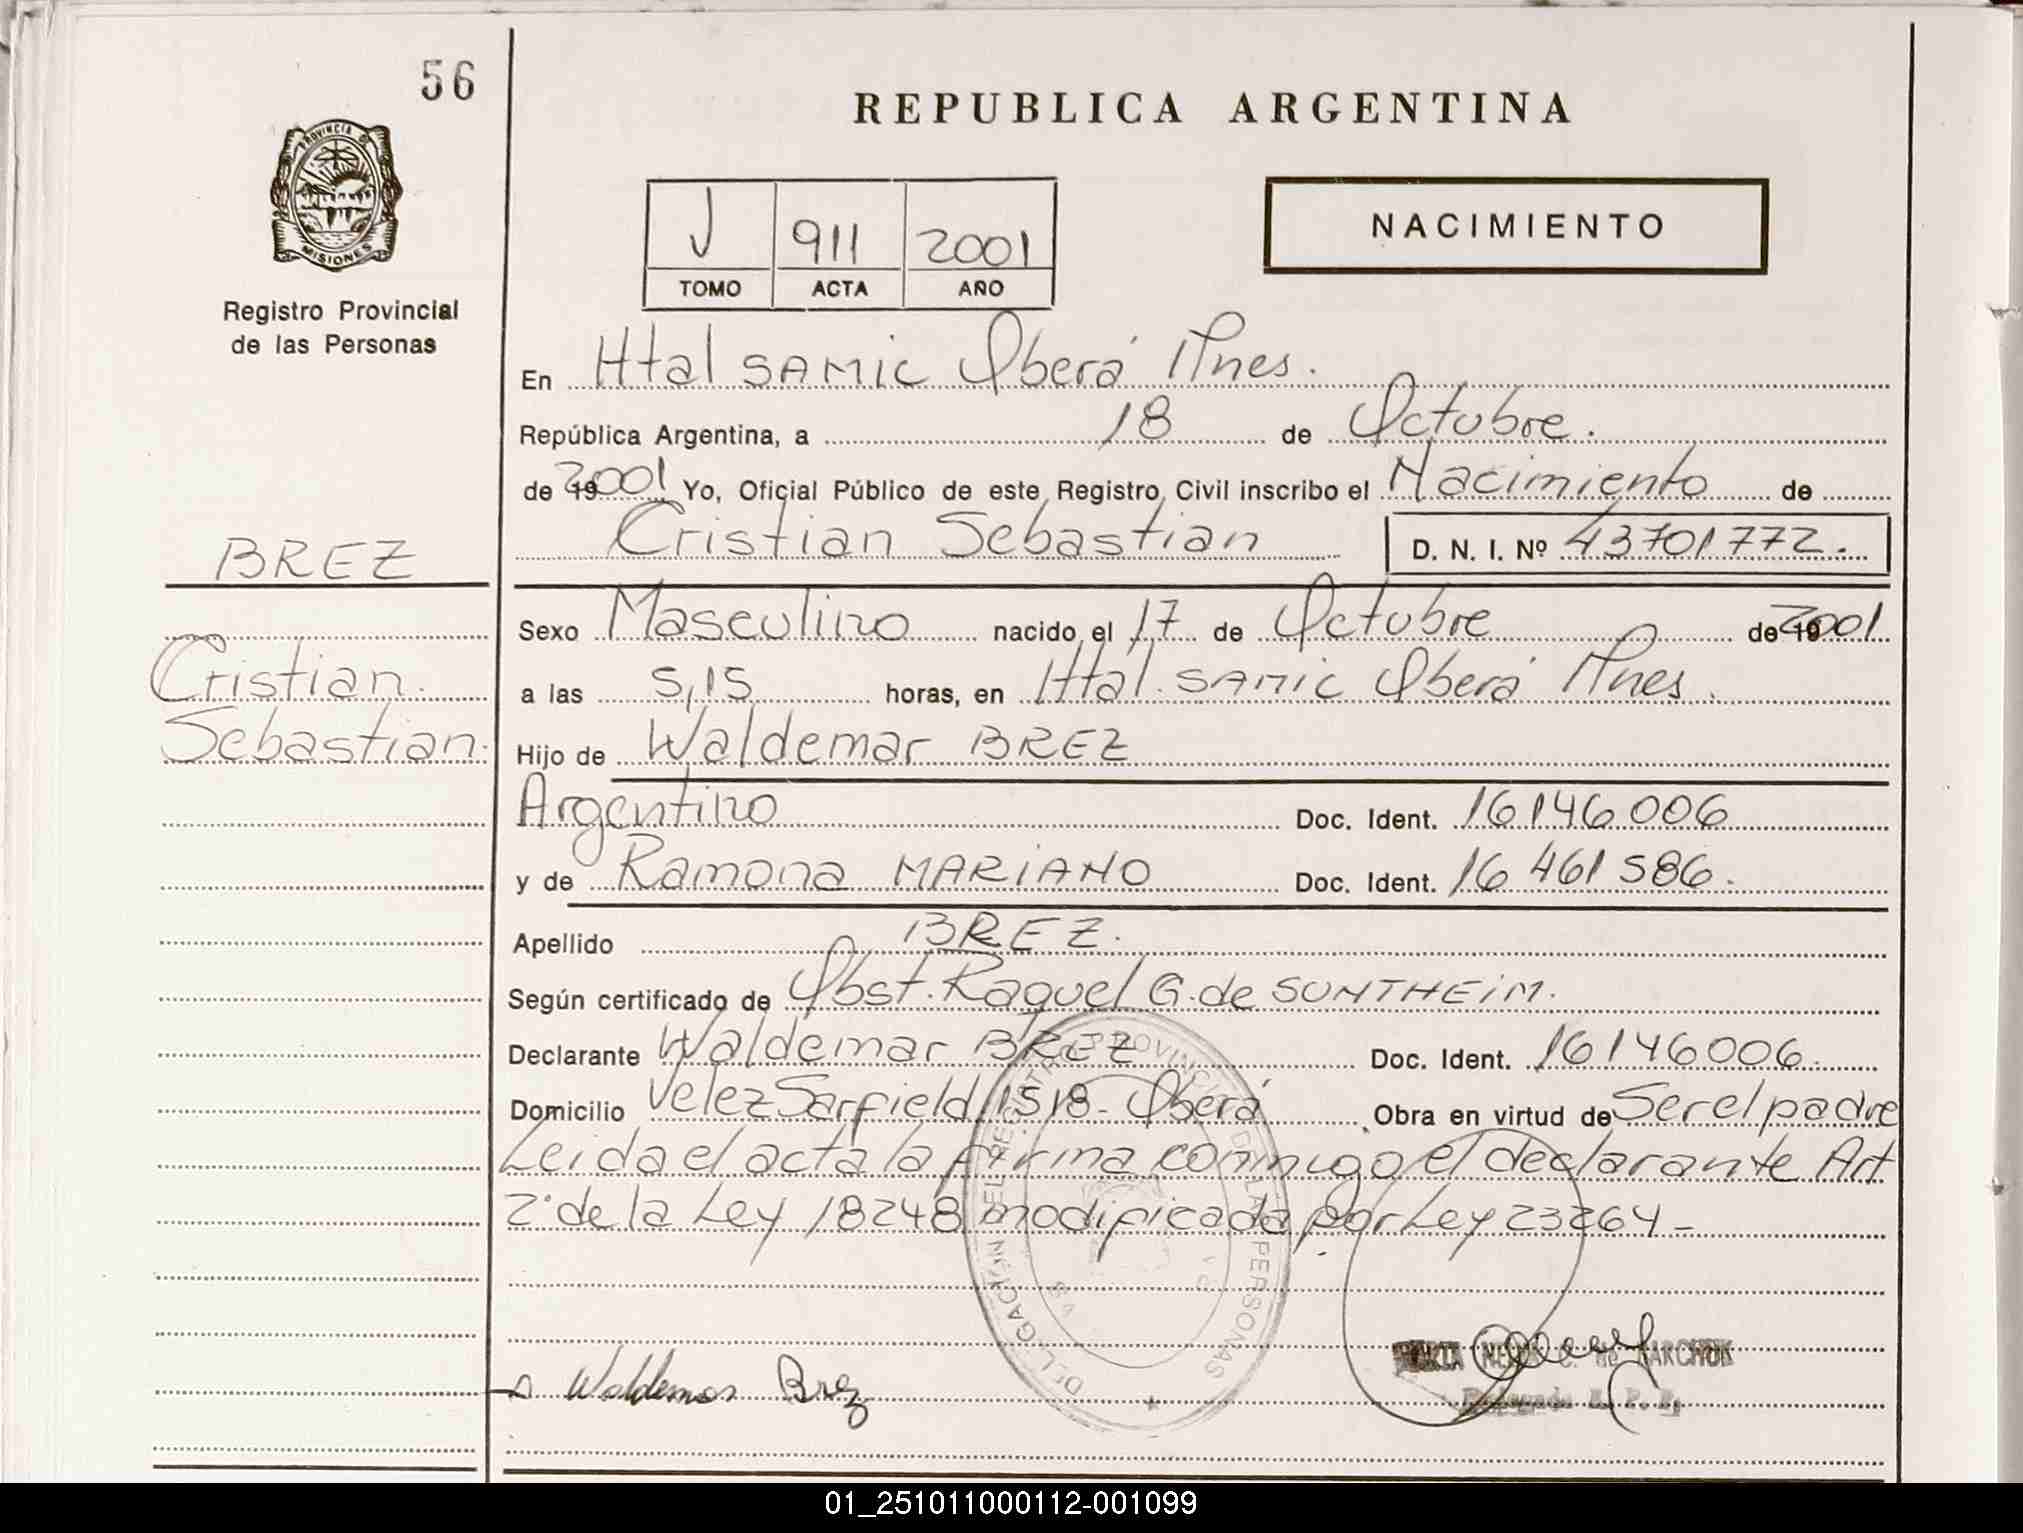 56
REPUBLICA ARGENTINA
PROVINCIA DE
MISIONES
Registro Provincial
de las Personas
J 911 2001
TOMO ACTA AÑO
NACIMIENTO
En Htal SAMIC Oberá Mnes.
República Argentina, a 18 de Octubre.
de 2001 Yo, Oficial Público de este Registro Civil inscribo el Nacimiento de
Cristian Sebastian D. N. I. Nº 43701772.
BREZ
Cristian.
Sebastian.
Sexo Masculino nacido el 17 de Octubre de 2001
a las 5,15 horas, en Htal. SAMIC Oberá Mnes.
Hijo de Waldemar BREZ
Argentino Doc. Ident. 16146006
y de Ramona MARIANO Doc. Ident. 16 461 586.
Apellido BREZ.
Según certificado de Obst. Raquel G. de SUNTHEIM.
Declarante Waldemar BREZ Doc. Ident. 16146006.
Domicilio Velez Sarfield 1518- Oberá. Obra en virtud de Ser el padre
Leida el acta la firma conmigo el declarante Art
2º de la Ley 18248 modificada por Ley 23264-
DELEGACION DEL REGISTRO PROVINCIAL DE LAS PERSONAS
Waldemar Brez
de MARCHUK
Delegada R. P. P.
01_251011000112-001099